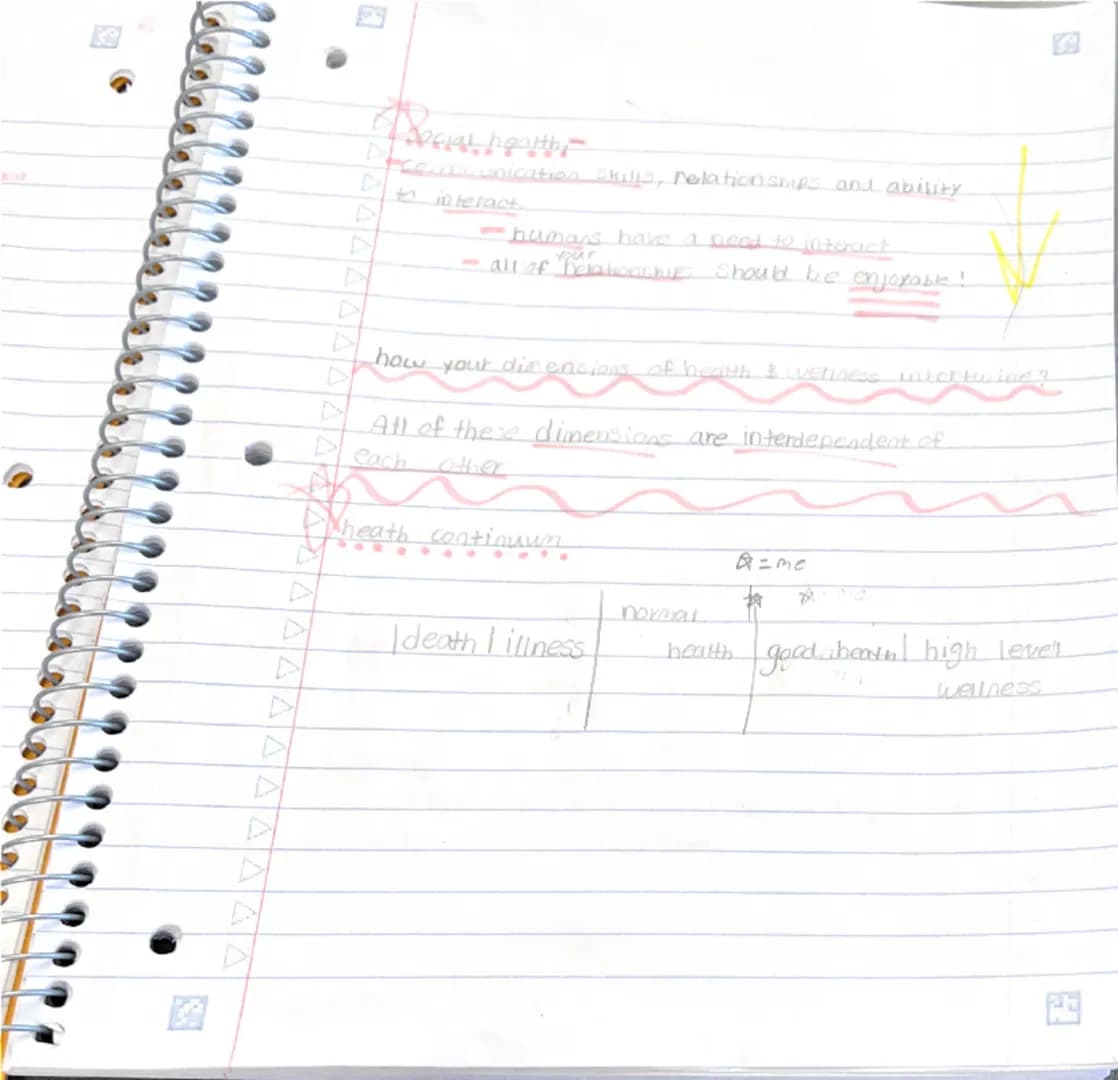 social health -
- communication skills, relationships and ability
to interact.
- humans have a need to interact
- all of your relationships should be enjoyable!
how your dimensions of health & wellness intertwine?
All of these dimensions are interdependent of
each other
heath continuum
☆ = me
normal
|death | illness health good health | high level
wellness